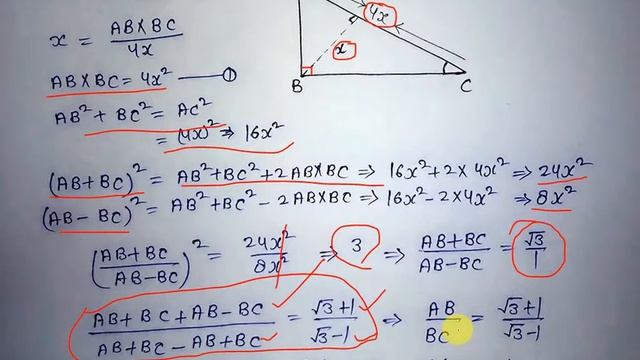 x = AB×BC / 4x
4x
x
B
C
AB×BC = 4x² —— ①
AB² + BC² = AC²
= (4x)² ⇒ 16x²
(AB+BC)² = AB²+BC²+2AB×BC ⇒ 16x²+2×4x² ⇒ 24x²
(AB-BC)² = AB²+BC²-2AB×BC ⇒ 16x²-2×4x² ⇒ 8x²
(AB+BC / AB-BC)² = 24x² / 8x² ⇒ 3 ⇒ AB+BC / AB-BC = √3 / 1
AB+BC+AB-BC / AB+BC-AB+BC = √3+1 / √3-1 ⇒ AB / BC = √3+1 / √3-1